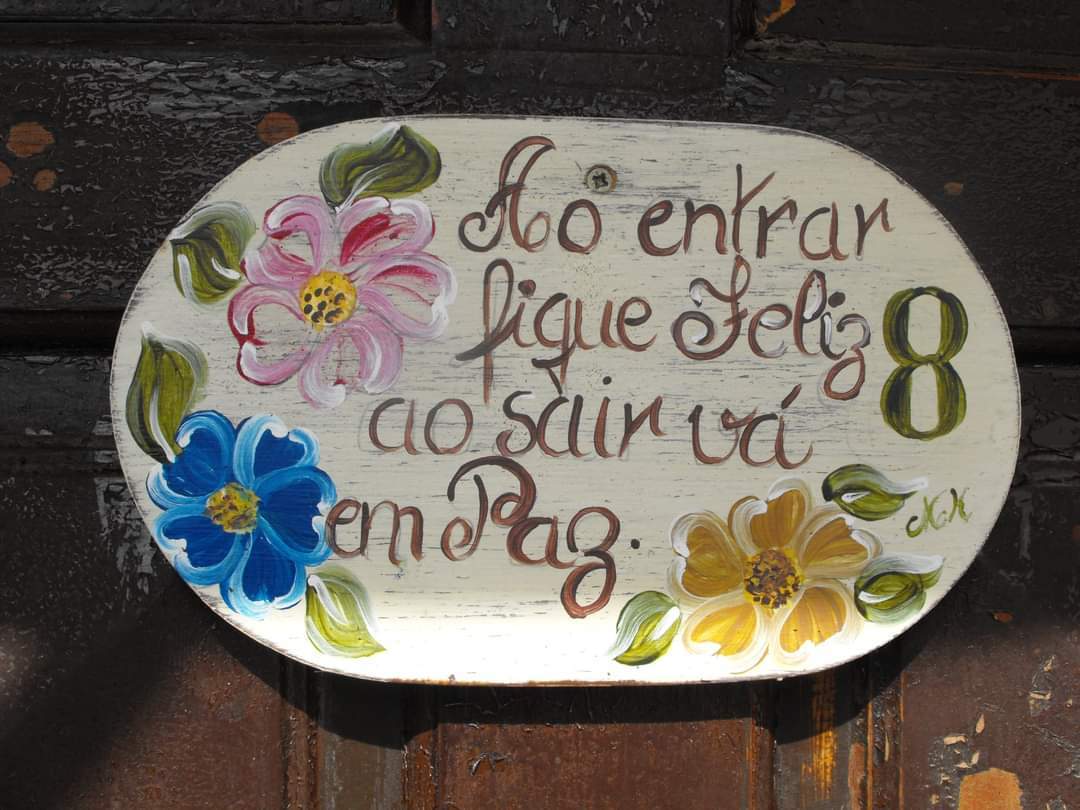 Ao entrar
fique Feliz
8
ao sair vá
em Paz.